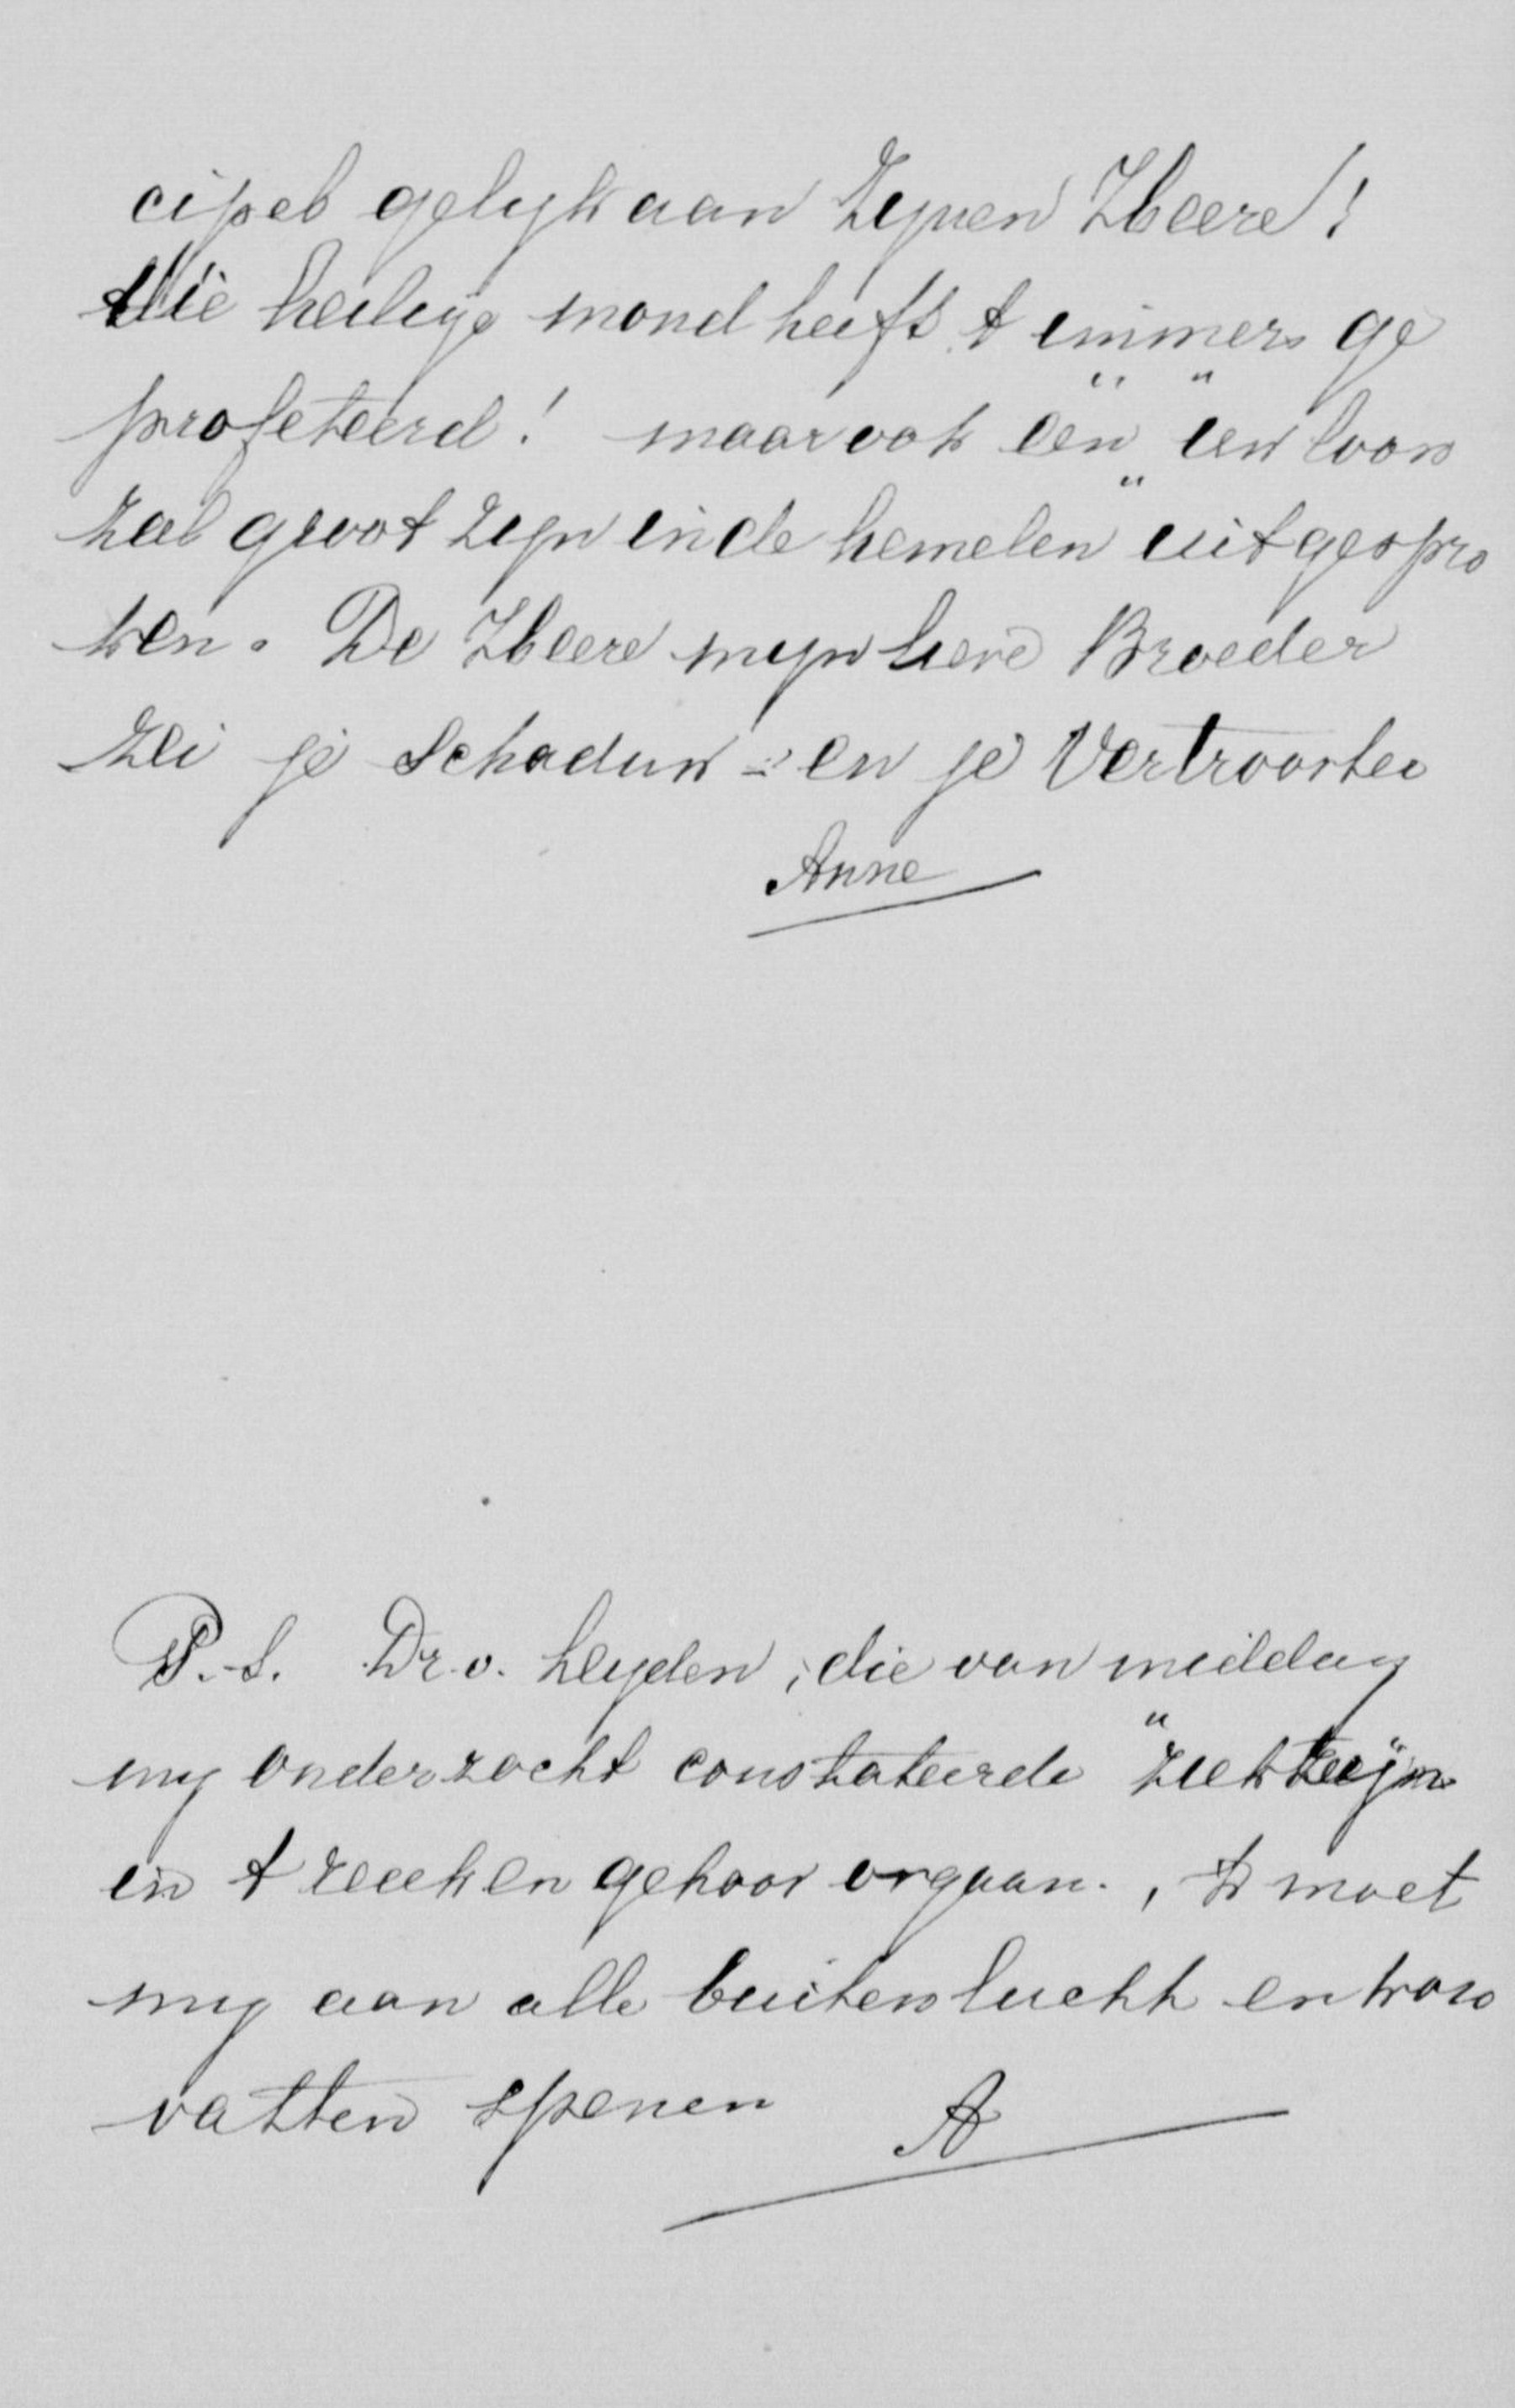 cipel gelyk aan Zynen Heere!
die heilige mond heeft 't immers ge
profeteerd! maar ook een "uw loon
zal groot zyn in de hemelen" uitgespro
ken. De Heere myn lieve Broeder
zei je Schaduw - en je Vertrooster
Anne
P.S. Dr. v. Leyden, die van middag
my onderzocht constateerde "ziek zyn"
in 't rechter gehoor orgaan., Ik moet
my aan alle buitenlucht en kou
vatten spenen A